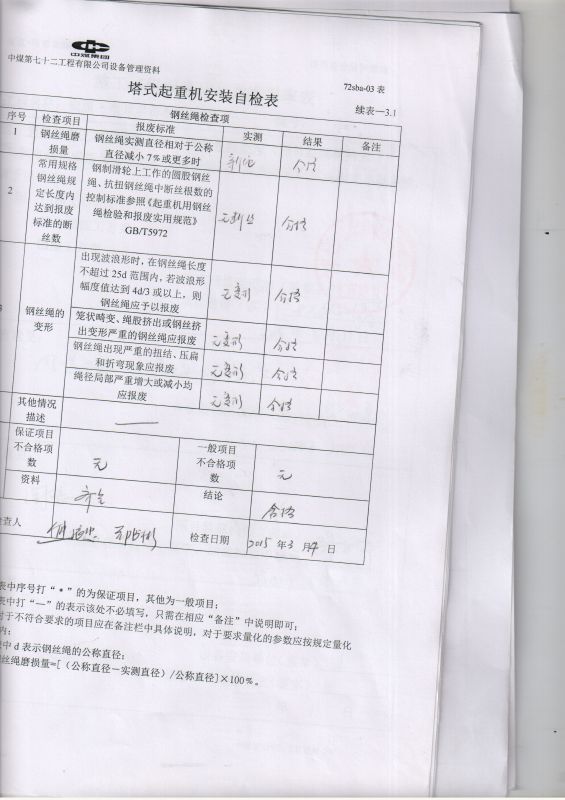 中煤集团
中煤第七十二工程有限公司设备管理资料
72sba-03 表
塔式起重机安装自检表
续表—3.1
钢丝绳检查项
序号 检查项目 报废标准 实测 结果 备注
1 钢丝绳磨损量 钢丝绳实测直径相对于公称
直径减小 7%或更多时 合格
2 常用规格
钢丝绳规
定长度内
达到报废
标准的断
丝数
钢制滑轮上工作的圆股钢丝
绳、抗扭钢丝绳中断丝根数的
控制标准参照《起重机用钢丝
绳检验和报废实用规范》
GB/T5972
合格
3 钢丝绳的
变形
出现波浪形时,在钢丝绳长度
不超过 25d 范围内,若波浪形
幅度值达到 4d/3 或以上,则
钢丝绳应予以报废
无变形 合格
笼状畸变、绳股挤出或钢丝挤
出变形严重的钢丝绳应报废
无变形 合格
钢丝绳出现严重的扭结、压扁
和折弯现象应报废
无变形 合格
绳径局部严重增大或减小均
应报废
无变形 合格
其他情况
描述
—
保证项目
不合格项
数
无
一般项目
不合格项
数
无
资料 齐全
结论 合格
查人
检查日期 2015 年 3 月 4 日
表中序号打“*”的为保证项目,其他为一般项目;
表中打“—”的表示该处不必填写,只需在相应“备注”中说明即可;
对于不符合要求的项目应在备注栏中具体说明,对于要求量化的参数应按规定量化
内;
中 d 表示钢丝绳的公称直径;
丝绳磨损量=[(公称直径-实测直径)/公称直径]×100%。